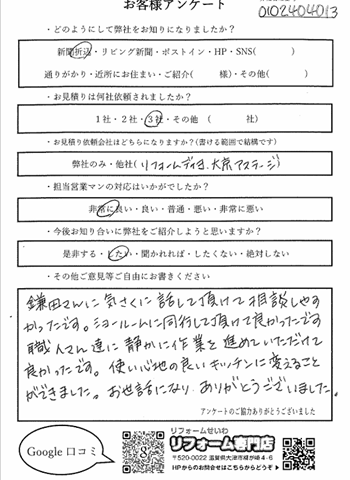 お客様アンケート
0102404013
・どのようにして弊社をお知りになりましたか?
新聞折込・リビング新聞・ポストイン・HP・SNS( )
通りがかり・近所にお住まい・ご紹介( 様)・その他( )
・お見積りは何社依頼されましたか?
1社・2社・3社・その他 ( 社)
・お見積り依頼会社はどちらになりますか?(書ける範囲で結構です)
弊社のみ・他社(リフォームデポ、大京アステージ)
・担当営業マンの対応はいかがでしたか?
非常に良い・良い・普通・悪い・非常に悪い
・今後お知り合いに弊社をご紹介しようと思いますか?
是非する・したい・聞かれれば・したくない・絶対しない
・その他ご意見等ご自由にお書きください
鎌田さんに気さくに話して頂けて相談しやす
かったです。ショールームに同行して頂けて良かったです
職人さん達に静かに作業を進めていただけて
良かったです。使い心地の良いキッチンに変えること
ができました。お世話になりありがとうございました。
アンケートのご協力ありがとうございました
Google口コミ
リフォームせいわ
リフォーム専門店
〒520-0022 滋賀県大津市柳が崎4-6
HPからのお問合せはこちらからどうぞ▶